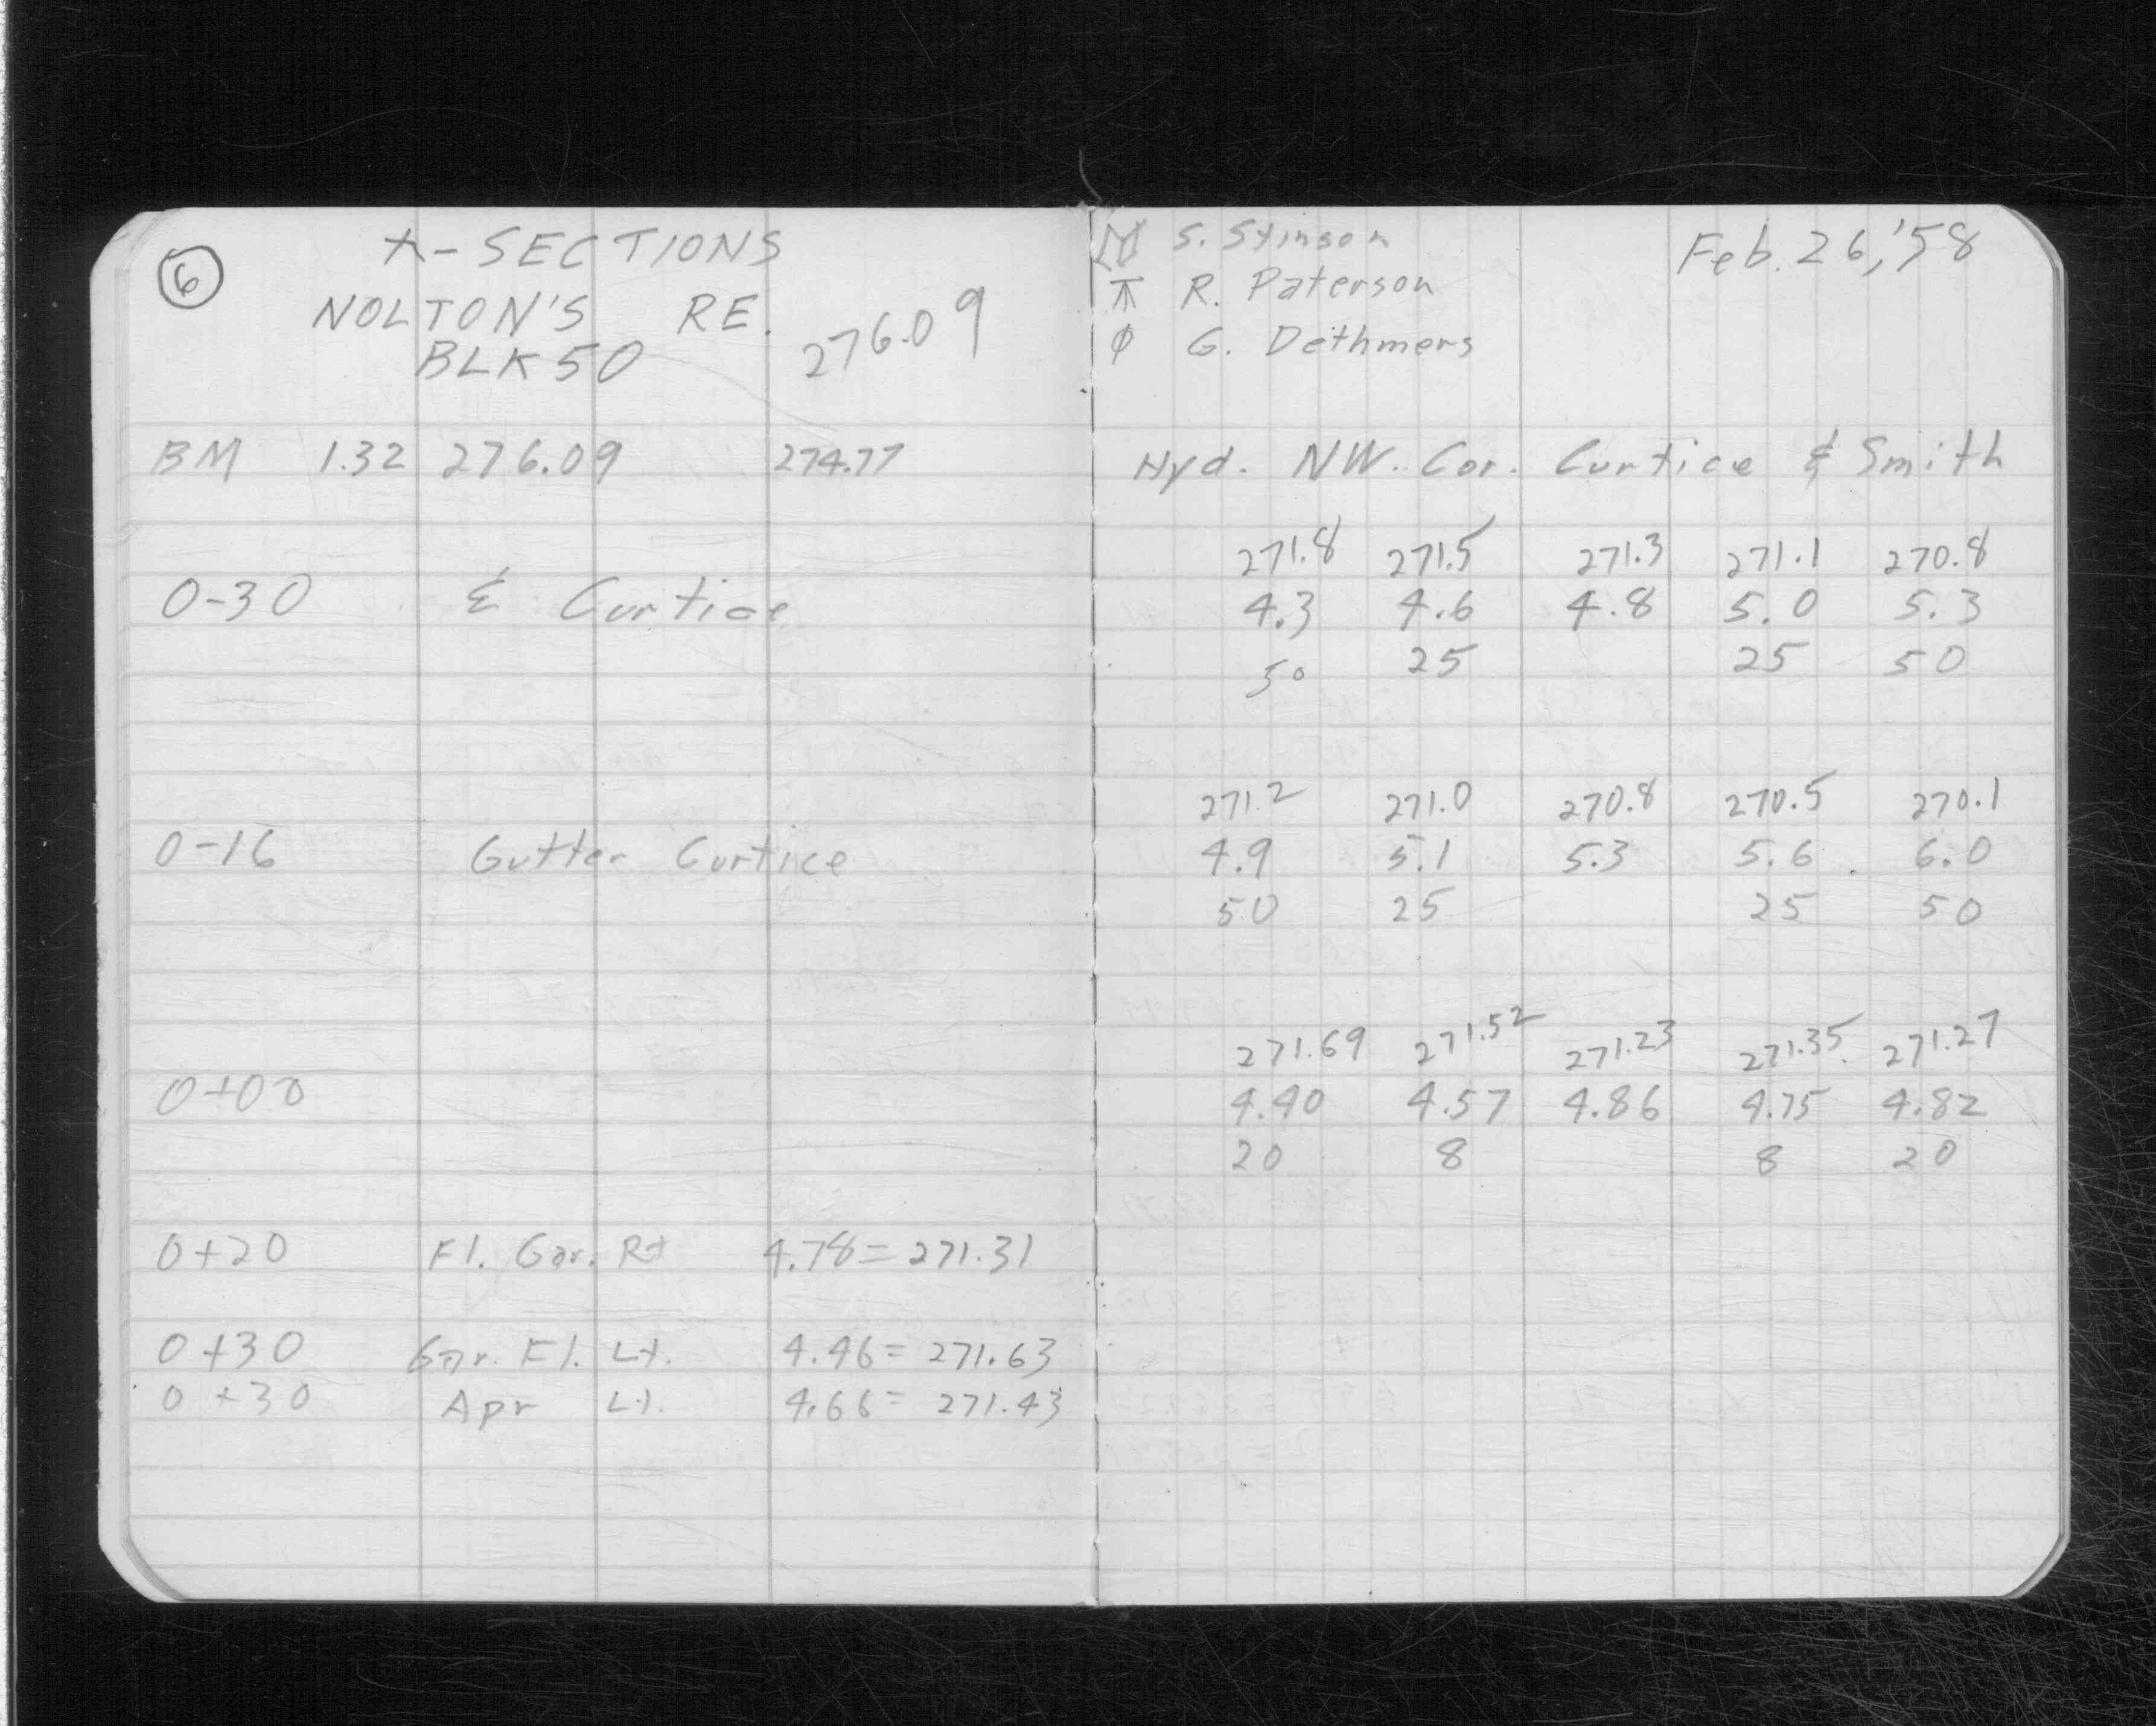 6
X-SECTIONS
NOLTON'S RE.
BLK 50
276.09
BM 1.32 276.09 274.77
0-30 ℄ Curtice
0-16 Gutter Curtice
0+00
0+20 Fl. Gar. Rt 4.78 = 271.31
0+30 Gar. Fl. Lt. 4.46 = 271.63
0+30 Apr Lt. 4.66 = 271.43
S. Stinson
Feb. 26, '58
⊼ R. Paterson
ϕ G. Dethmers
Hyd. NW. Cor. Curtice & Smith
271.8 271.5 271.3 271.1 270.8
4.3 4.6 4.8 5.0 5.3
50 25 25 50
271.2 271.0 270.8 270.5 270.1
4.9 5.1 5.3 5.6 6.0
50 25 25 50
271.69 271.52 271.23 271.35 271.27
4.40 4.57 4.86 4.75 4.82
20 8 8 20